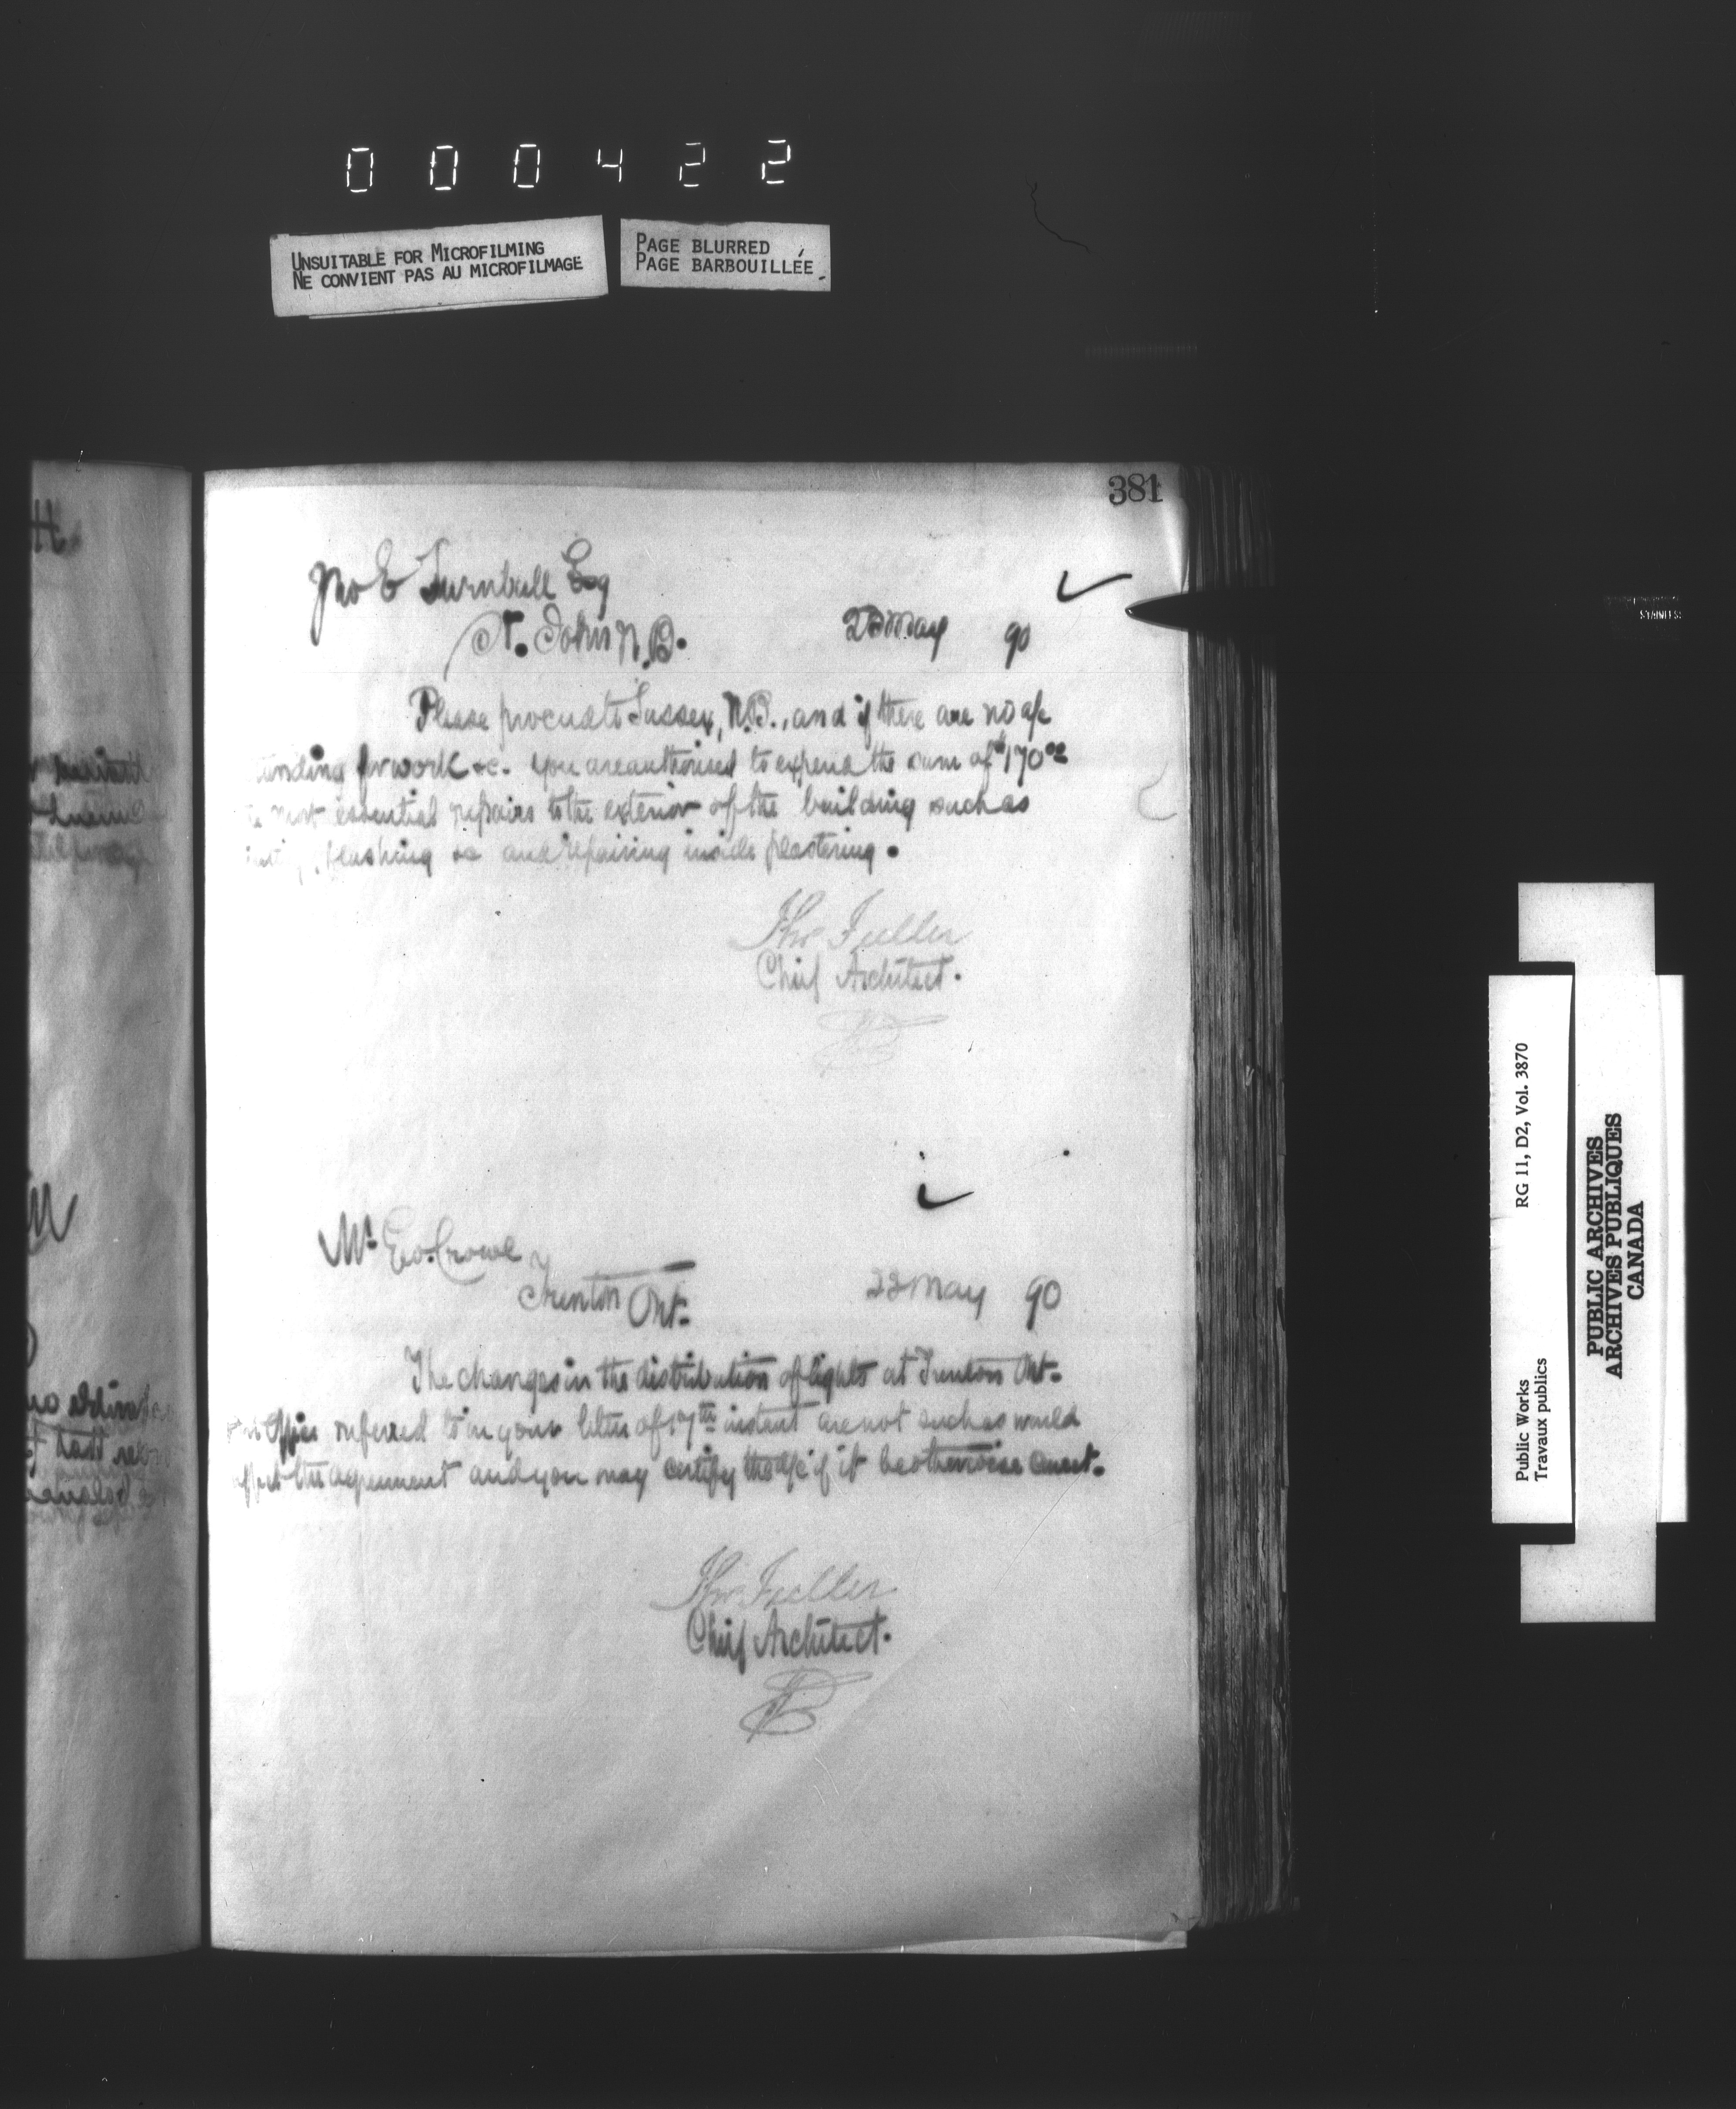 000422
UNSUITABLE FOR MICROFILMING
NE CONVIENT PAS AU MICROFILMAGE
PAGE BLURRED
PAGE BARBOUILLÉE
381
Jno E Turnbull Esq
St. John N.B. May 90
Please proceed to Sussex, N.B., and if there are no a/c
for work &c. you are authorised to expend the sum of $170.00
most essential repairs to the exterior of the building such as
flashing &c and repairing inside plastering.
Thos Fuller
Chief Architect.
Mr Geo. Crowe
Trenton Ont. 22 May 90
The changes in the distribution of lights at Trenton Ont.
Office referred to in your letter of 17th instant are not such as would
affect the agreement and you may certify the a/c if it be otherwise correct.
Thos Fuller
Chief Architect.
Public Works RG 11, D2, Vol. 3870
Travaux publics
PUBLIC ARCHIVES
ARCHIVES PUBLIQUES
CANADA